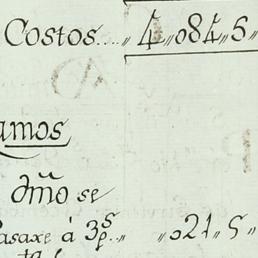 Costos.... „ 4„084„5„
amos
dh̃o se
asaxe a 3 p.s „ „021„5„